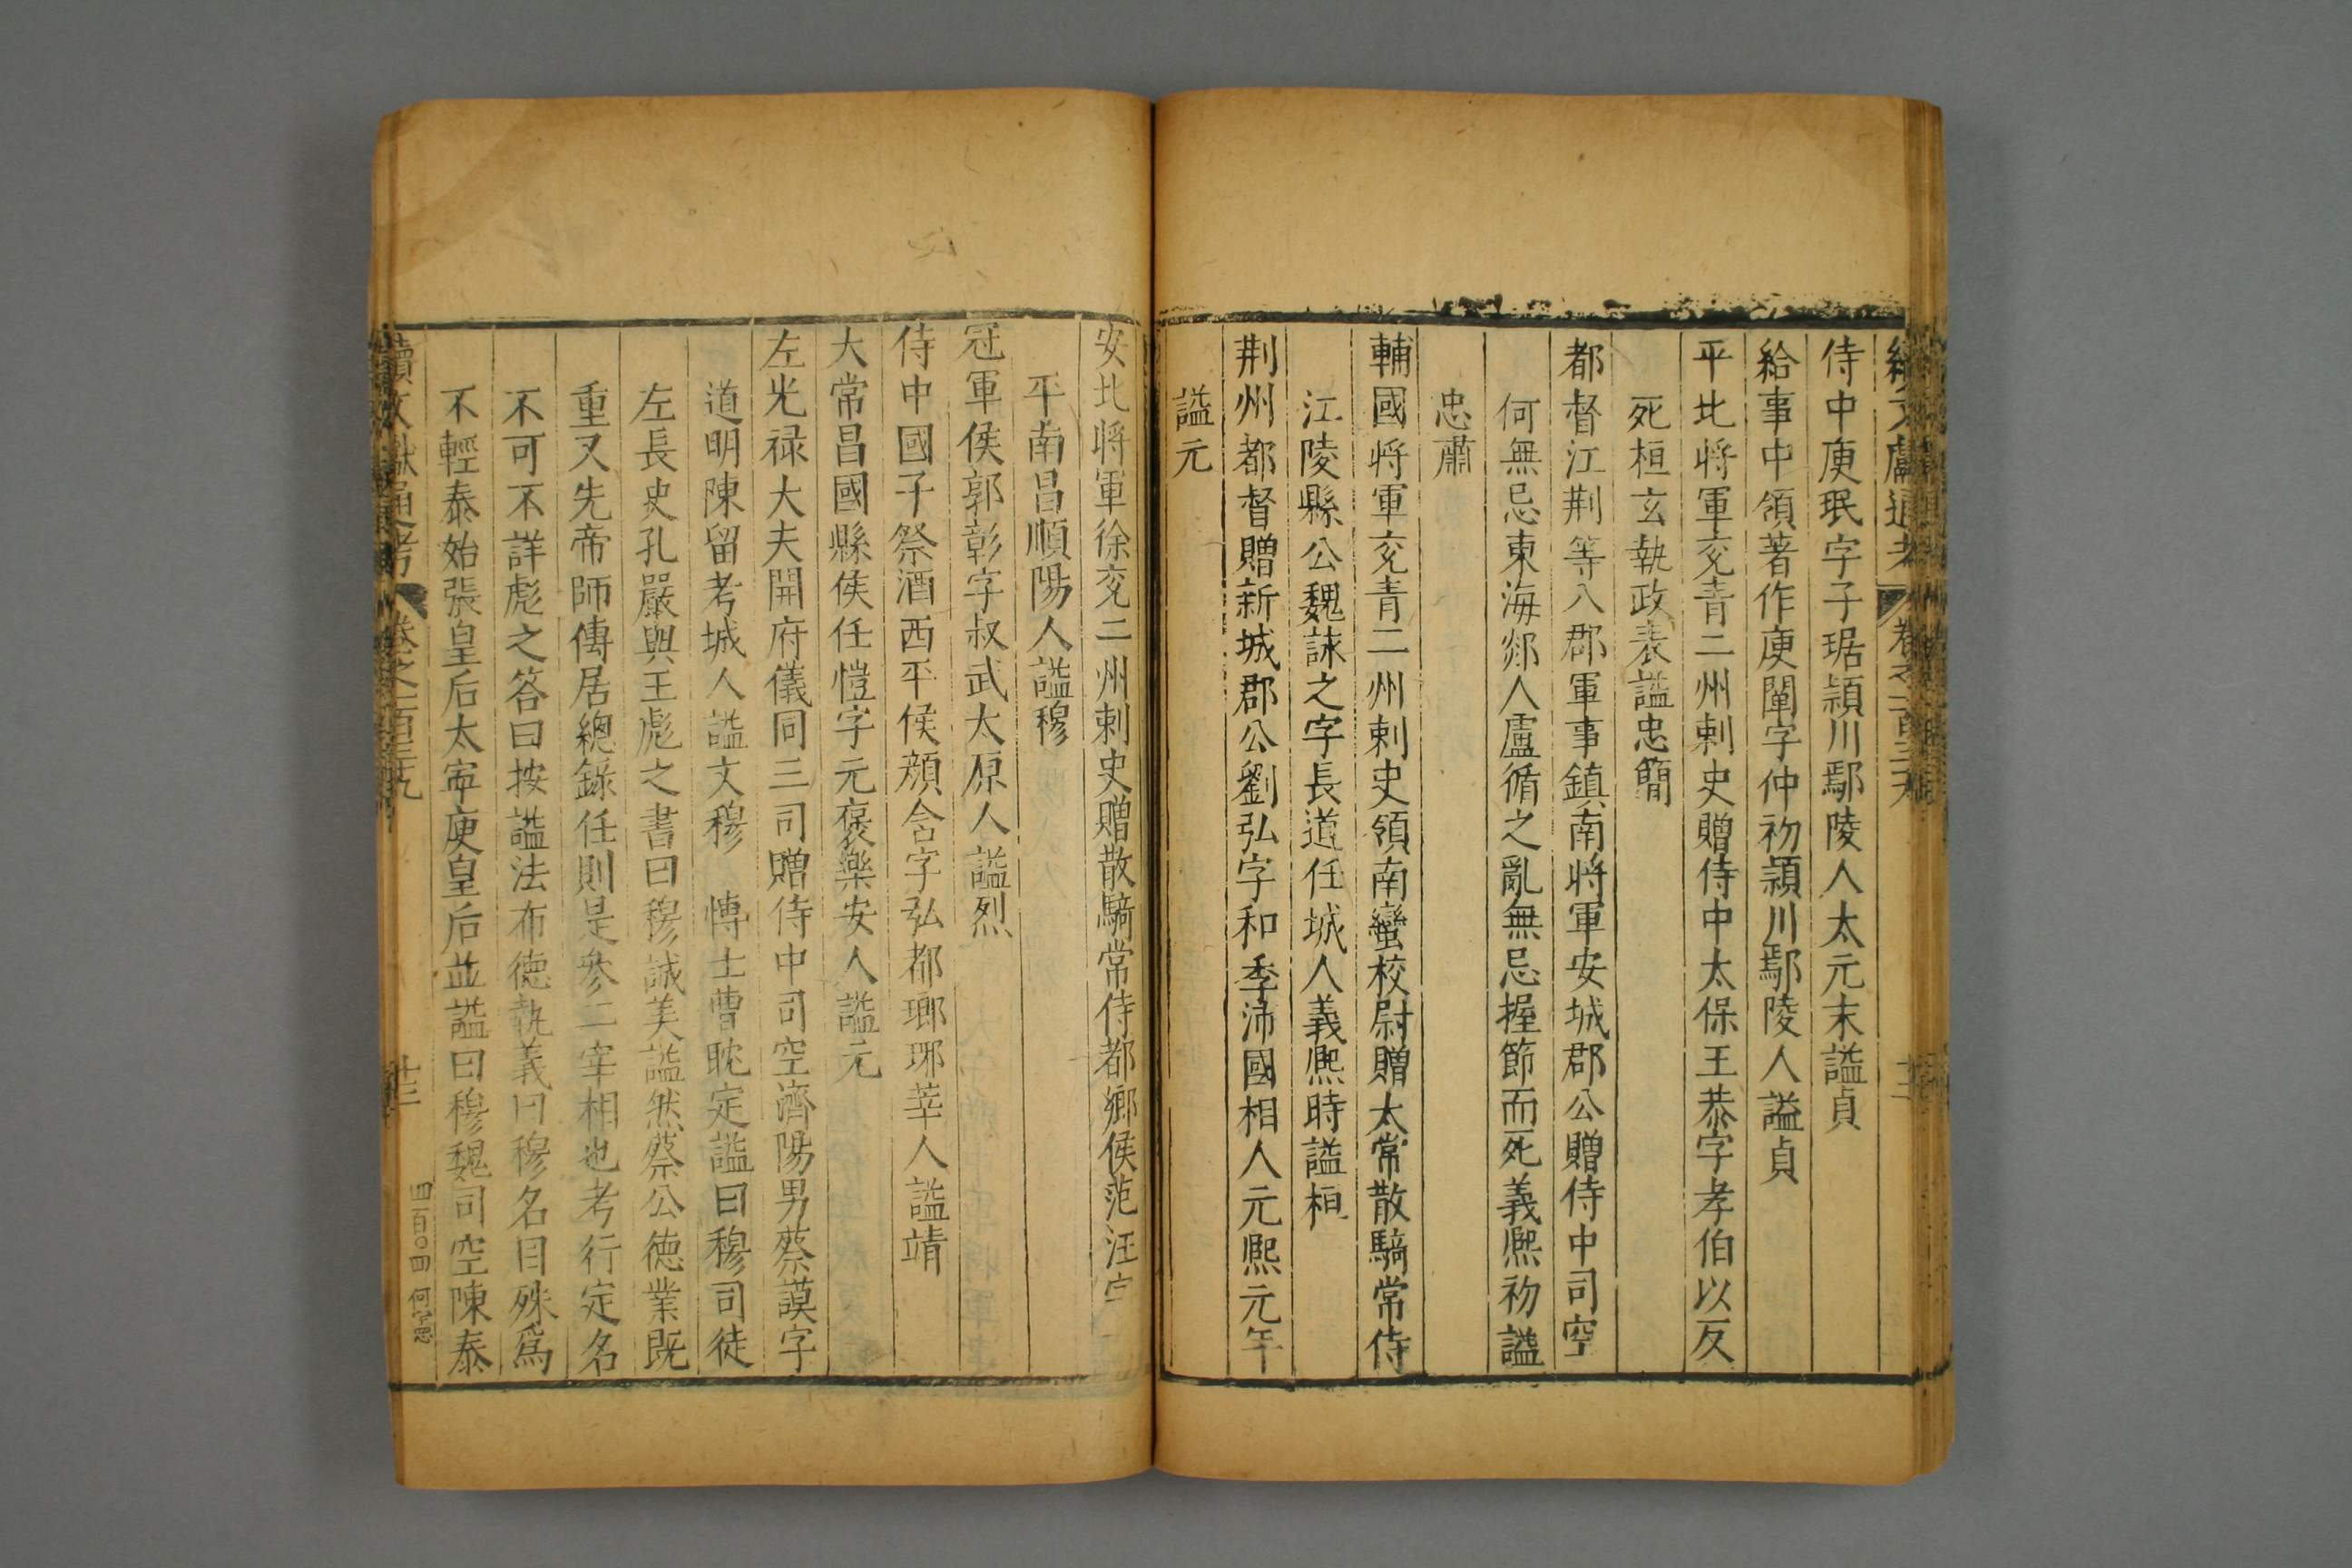 續文獻通考 卷之一百三十九
侍中庾珉字子琚頴川鄢陵人太元末謚貞
給事中領著作庾闡字仲初頴川鄢陵人謚貞
平北將軍兖青二州刺史贈侍中太保王恭字孝伯以反
死桓玄執政表謚忠簡
都督江荆等八郡軍事鎮南將軍安城郡公贈侍中司空
何無忌東海郯人盧循之亂無忌握節而死義熈初謚
忠肅
輔國將軍兖青二州刺史領南蠻校尉贈太常散騎常侍
江陵縣公魏詠之字長道任城人義熈時謚桓
荆州都督贈新城郡公劉弘字和季沛國相人元熈元年
謚元
安北將軍徐兖二州刺史贈散騎常侍都鄉侯范汪字
平南昌順陽人謚穆
冠軍侯郭彰字叔武太原人謚烈
侍中國子祭酒西平侯顔含字弘都瑯琊莘人謚靖
大常昌國縣侯任愷字元褒樂安人謚元
左光禄大夫開府儀同三司贈侍中司空濟陽男蔡謨字
道明陳留考城人謚文穆 愽士曹眈定謚曰穆司徒
左長史孔嚴與王彪之書曰穆誠美謚然蔡公德業既
重又先帝師傅居總錄任則是參二宰相也考行定名
不可不詳彪之答曰按謚法布德執義曰穆名目殊爲
不輕泰始張皇后太寜庾皇后並謚曰穆魏司空陳泰
續文獻通考 卷之一百三十九 十三 四百〇四 何